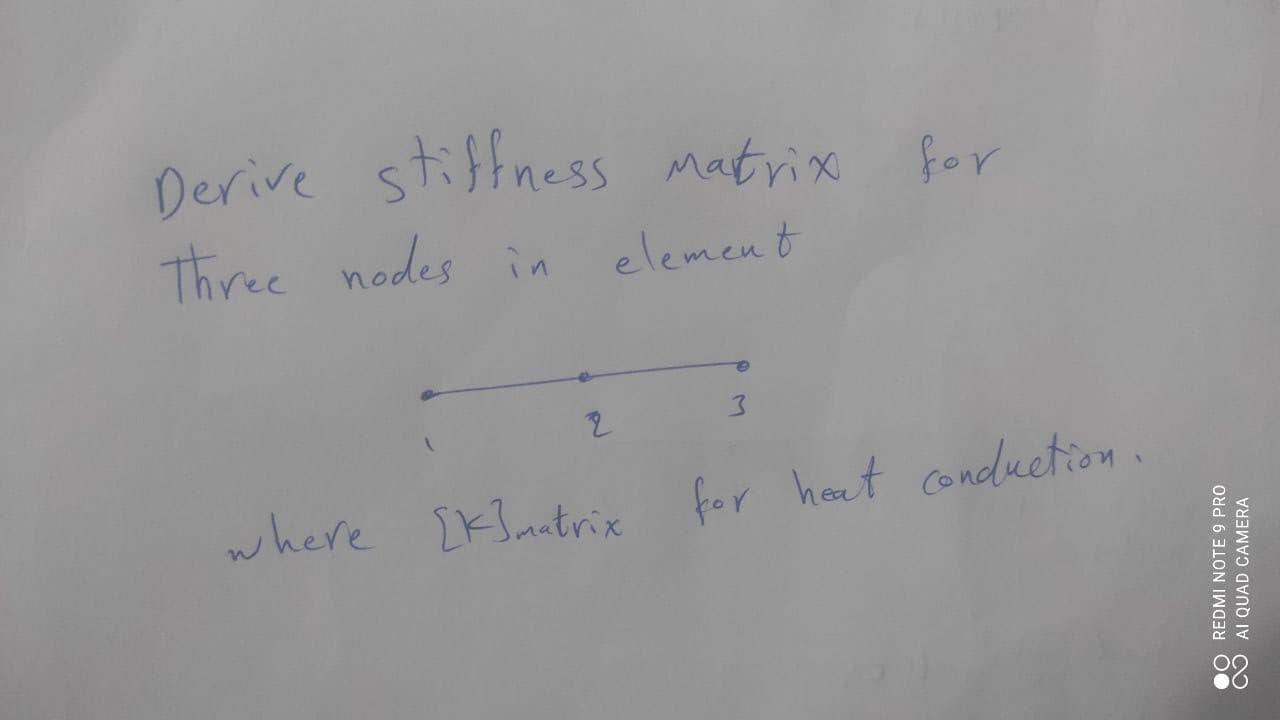 Derive stiffness Matrix for
Three nodes in element
1 2 3
where [K]matrix for heat conduction.
REDMI NOTE 9 PRO
AI QUAD CAMERA